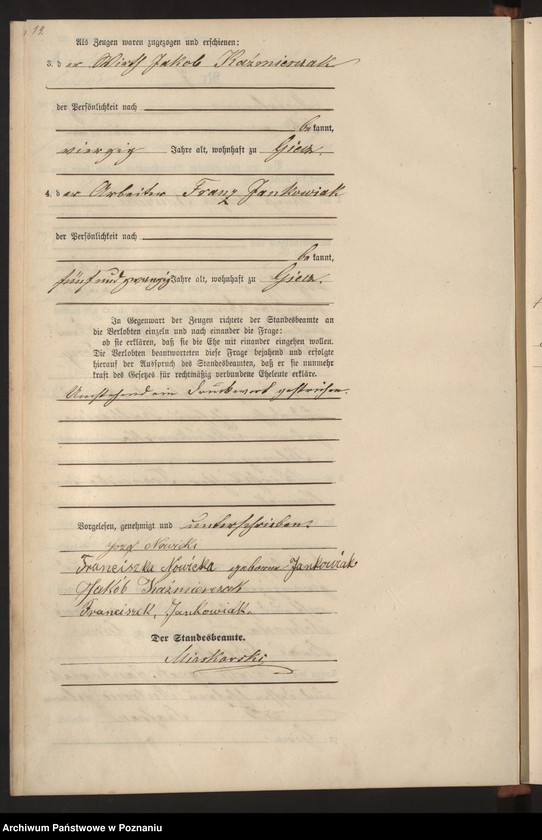 12.
Als Zeugen waren zugezogen und erschienen:
3. der Wirth Jakob Kaźmierczak
der Persönlichkeit nach
bekannt,
vierzig Jahre alt, wohnhaft zu Giecz.
4. der Arbeiter Franz Jankowiak
der Persönlichkeit nach
bekannt,
fünfundzwanzig Jahre alt, wohnhaft zu Giecz.
In Gegenwart der Zeugen richtete der Standesbeamte an
die Verlobten einzeln und nach einander die Frage:
ob sie erklären, daß sie die Ehe mit einander eingehen wollen.
Die Verlobten beantworteten diese Frage bejahend und erfolgte
hierauf der Ausspruch des Standesbeamten, daß er sie nunmehr
kraft des Gesetzes für rechtmäßig verbundene Eheleute erkläre.
Umstehend ein Druckwort gestrichen.
Vorgelesen, genehmigt und unterschrieben:
Nowicki
Franciszka Nowicka geborne Jankowiak
Jakób Kaźmierczak
Franciszek Jankowiak.
Der Standesbeamte.
Miaskowski
Archiwum Państwowe w Poznaniu